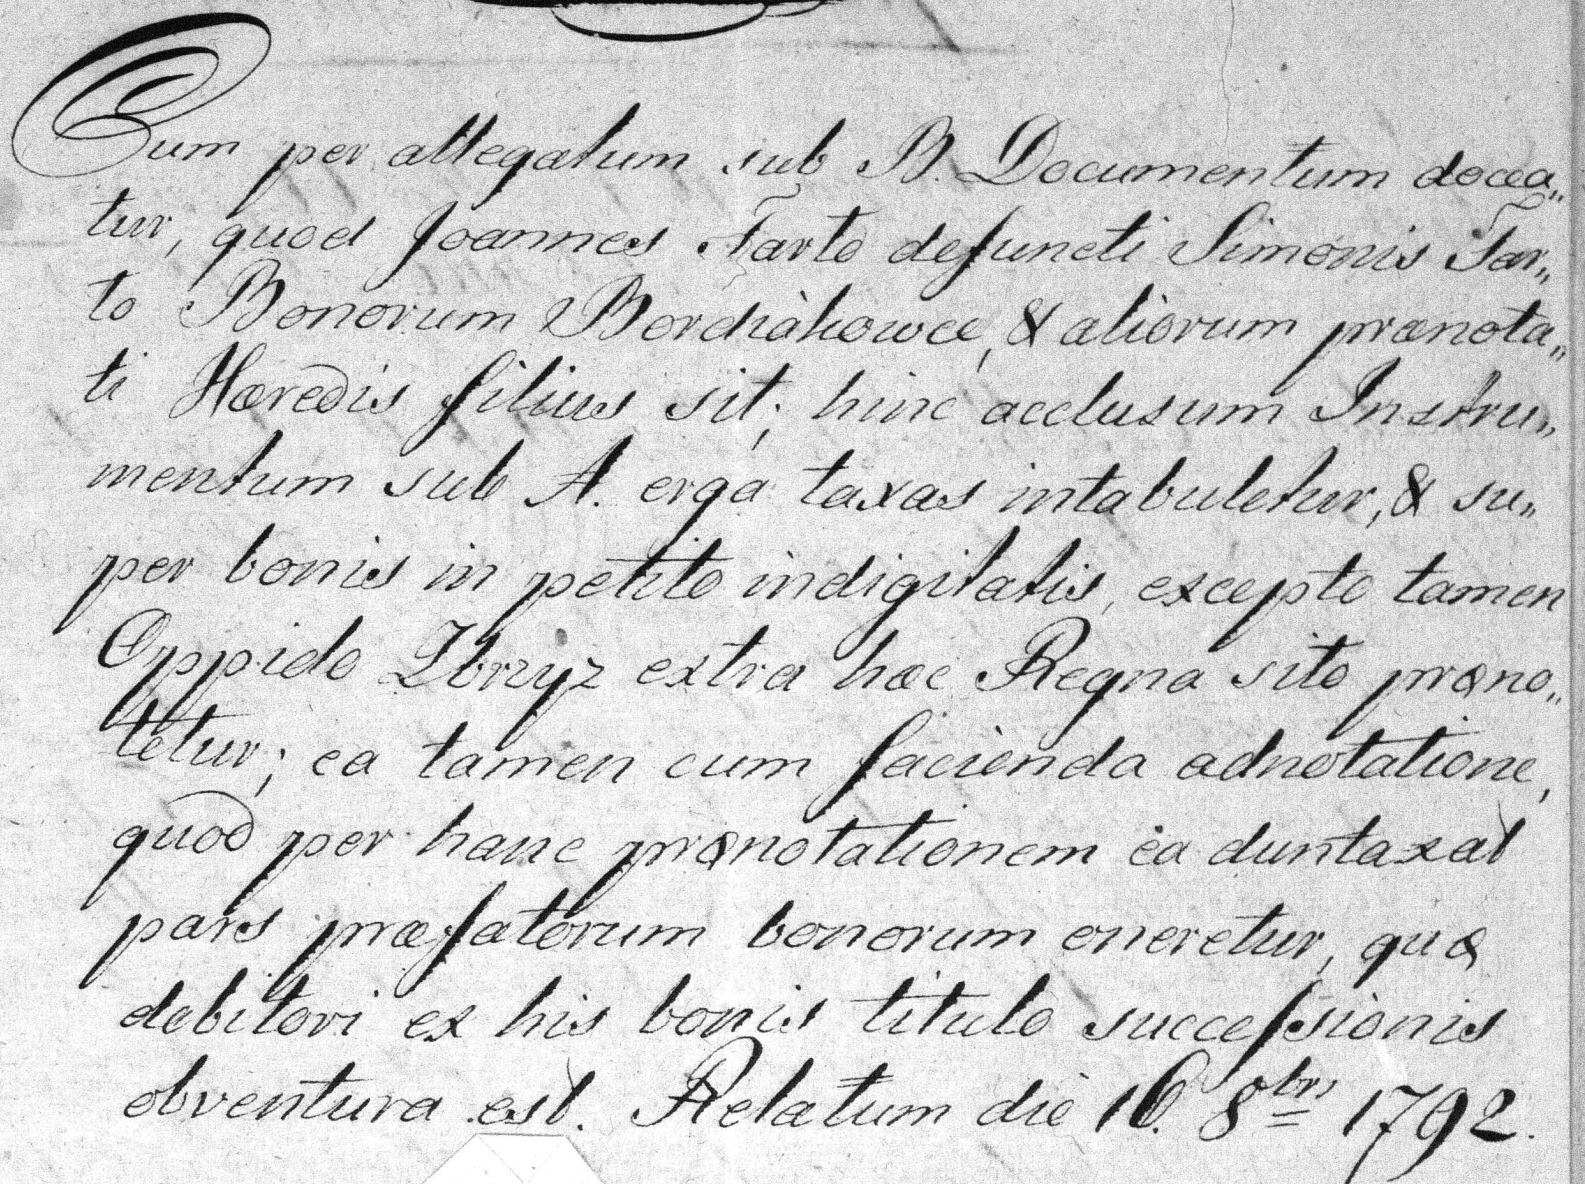 Cum per allegatum sub B. Documentum docea„
tur, quod Joannes Tarło defuncti Simonis Tar„
ło Bonorum Bordiàkowce, & aliorum prænota„
ti Hæredis filius sit; hinc acclusum Instru„
mentum sub A. erga taxas intabuletur, & su„
per bonis in petito indigitatis, excepto tamen
Oppido Zbryz extra hæc Regna sito præno„
tetur; ea tamen cum facienda adnotatione,
quod per hanc prænotationem ea duntaxat
pars præfatorum bonorum oneretur, quæ
debitori ex his bonis titulo successionis
obventura est. Relatum die 16. 8brs 1792.